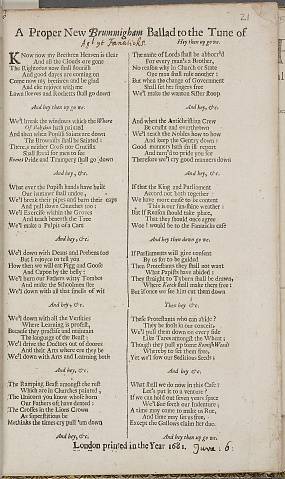 21
A Proper New Brummigham Ballad to the Tune of
Hey then up go we.
Agt ye Fanaticks.
Know now my Brethren Heaven is clear
And all the Clouds are gone
The Righteous now shall flourish
And good dayes are coming on
Come now my Brethren and be glad
And eke rejoyce with me
Lawn sleeves and Rochets shall go down
And hey then up go we.
We'l break the windows which the Whore
Of Babylon hath painted
And then when Popish Saints are down
The Brownists shall be Sainted:
There's neither Cross nor Crucifix
Shall stand for men to see
Romes Pride and Trumpery shall go down
And hey, &c.
What ever the Popish hands have built
Our hammers shall undo,
We'l break their pipes and burn their caps
And pull down Churches too:
We'l Exercise within the Groves
And teach beneath the Tree
We'l make a Pulpit of a Cart
And hey, &c.
We'l down with Deans and Prebens too
But I rejoyce to tell you
How then we will eat Pigg and Goose
And Capon by the belly:
We'l burn our Fathers witty Tombs
And make the Schoolmen flee
We'l down with all that smells of wit
And hey, &c.
We'l down with all the Versities
Where Learning is profest,
Because they practise and maintain
The language of the Beast:
We'l drive the Doctors out of doores
And their Arts where ere they be
We'l down with Arts and Learning both
And hey, &c.
The Ramping Beast amongst the rest
Which are in Churches painted,
The Unicorn you know whose horn
Our Fathers eft have dented:
The Crosses in the Lions Crown
As superstitious be
Methinks the times cry pull 'um down
And hey, &c.
The name of Lords shall be abhorr'd
For every man's a Brother,
No reason why in Church or State
One man shall rule another:
But when the change of Government
Shall set her fingers free
We'l make the wanton Sister stoop
And hey, &c.
And when the Antichristian Crew
Be crusht and overthrown
We'l teach the Nobles how to bow
And keep the Gentry down:
Good manners hath an ill report
And turn'd to pride you see
Therefore we'l cry good manners down
And hey, &c.
If that the King and Parliament
Accord not both together
We have more cause to be content
This is our sunshine weather:
But if Reason should take place,
That they should once agree
Woe! would be to the Fanaticks case
And hey then down go we.
If Parliaments will give consent
By us for to be guided
Then Protestants they shall not want
What Papists have abided:
Then straight to Tyburn shall be drawn,
Where Ketch shall make them free:
But if once we see him cut them down
Then hey &c.
These Protestants who can abide?
They be such in our conceit,
We'l pull them down on every side
Like Tares amongst the Wheat:
Though they pull up some
Whereby to set them free,
Yet we'l sow our Seditious Seeds:
And hey &c.
What shall we do now in this Case?
Let's put it to a venture?
If we can hold out seven years space
We'l sue forth our Indenture;
A time may come to make us Roe,
And time may set us free,
Except the Gallows claim her due.
And hey then up go we.
London printed in the Year 1681. June: 6: